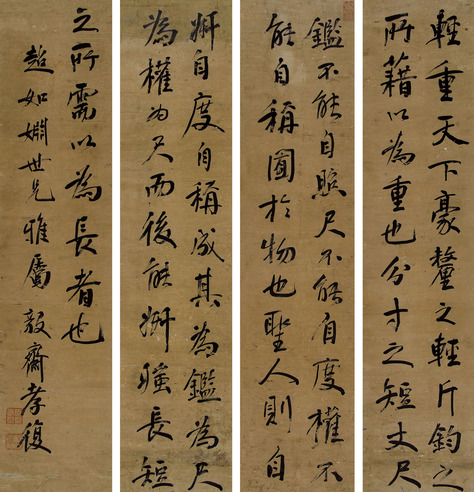 輕重天下豪釐之輕斤鈞之
所藉以為重也分寸之短丈尺
鑑不能自照尺不能自度權不
能自稱囿於物也聖人則自
妍自度自稱成其為鑑為尺
為權為尺而後能妍媸長短
之所需以為長者也
超如嫻世兄雅屬毅齋孝復